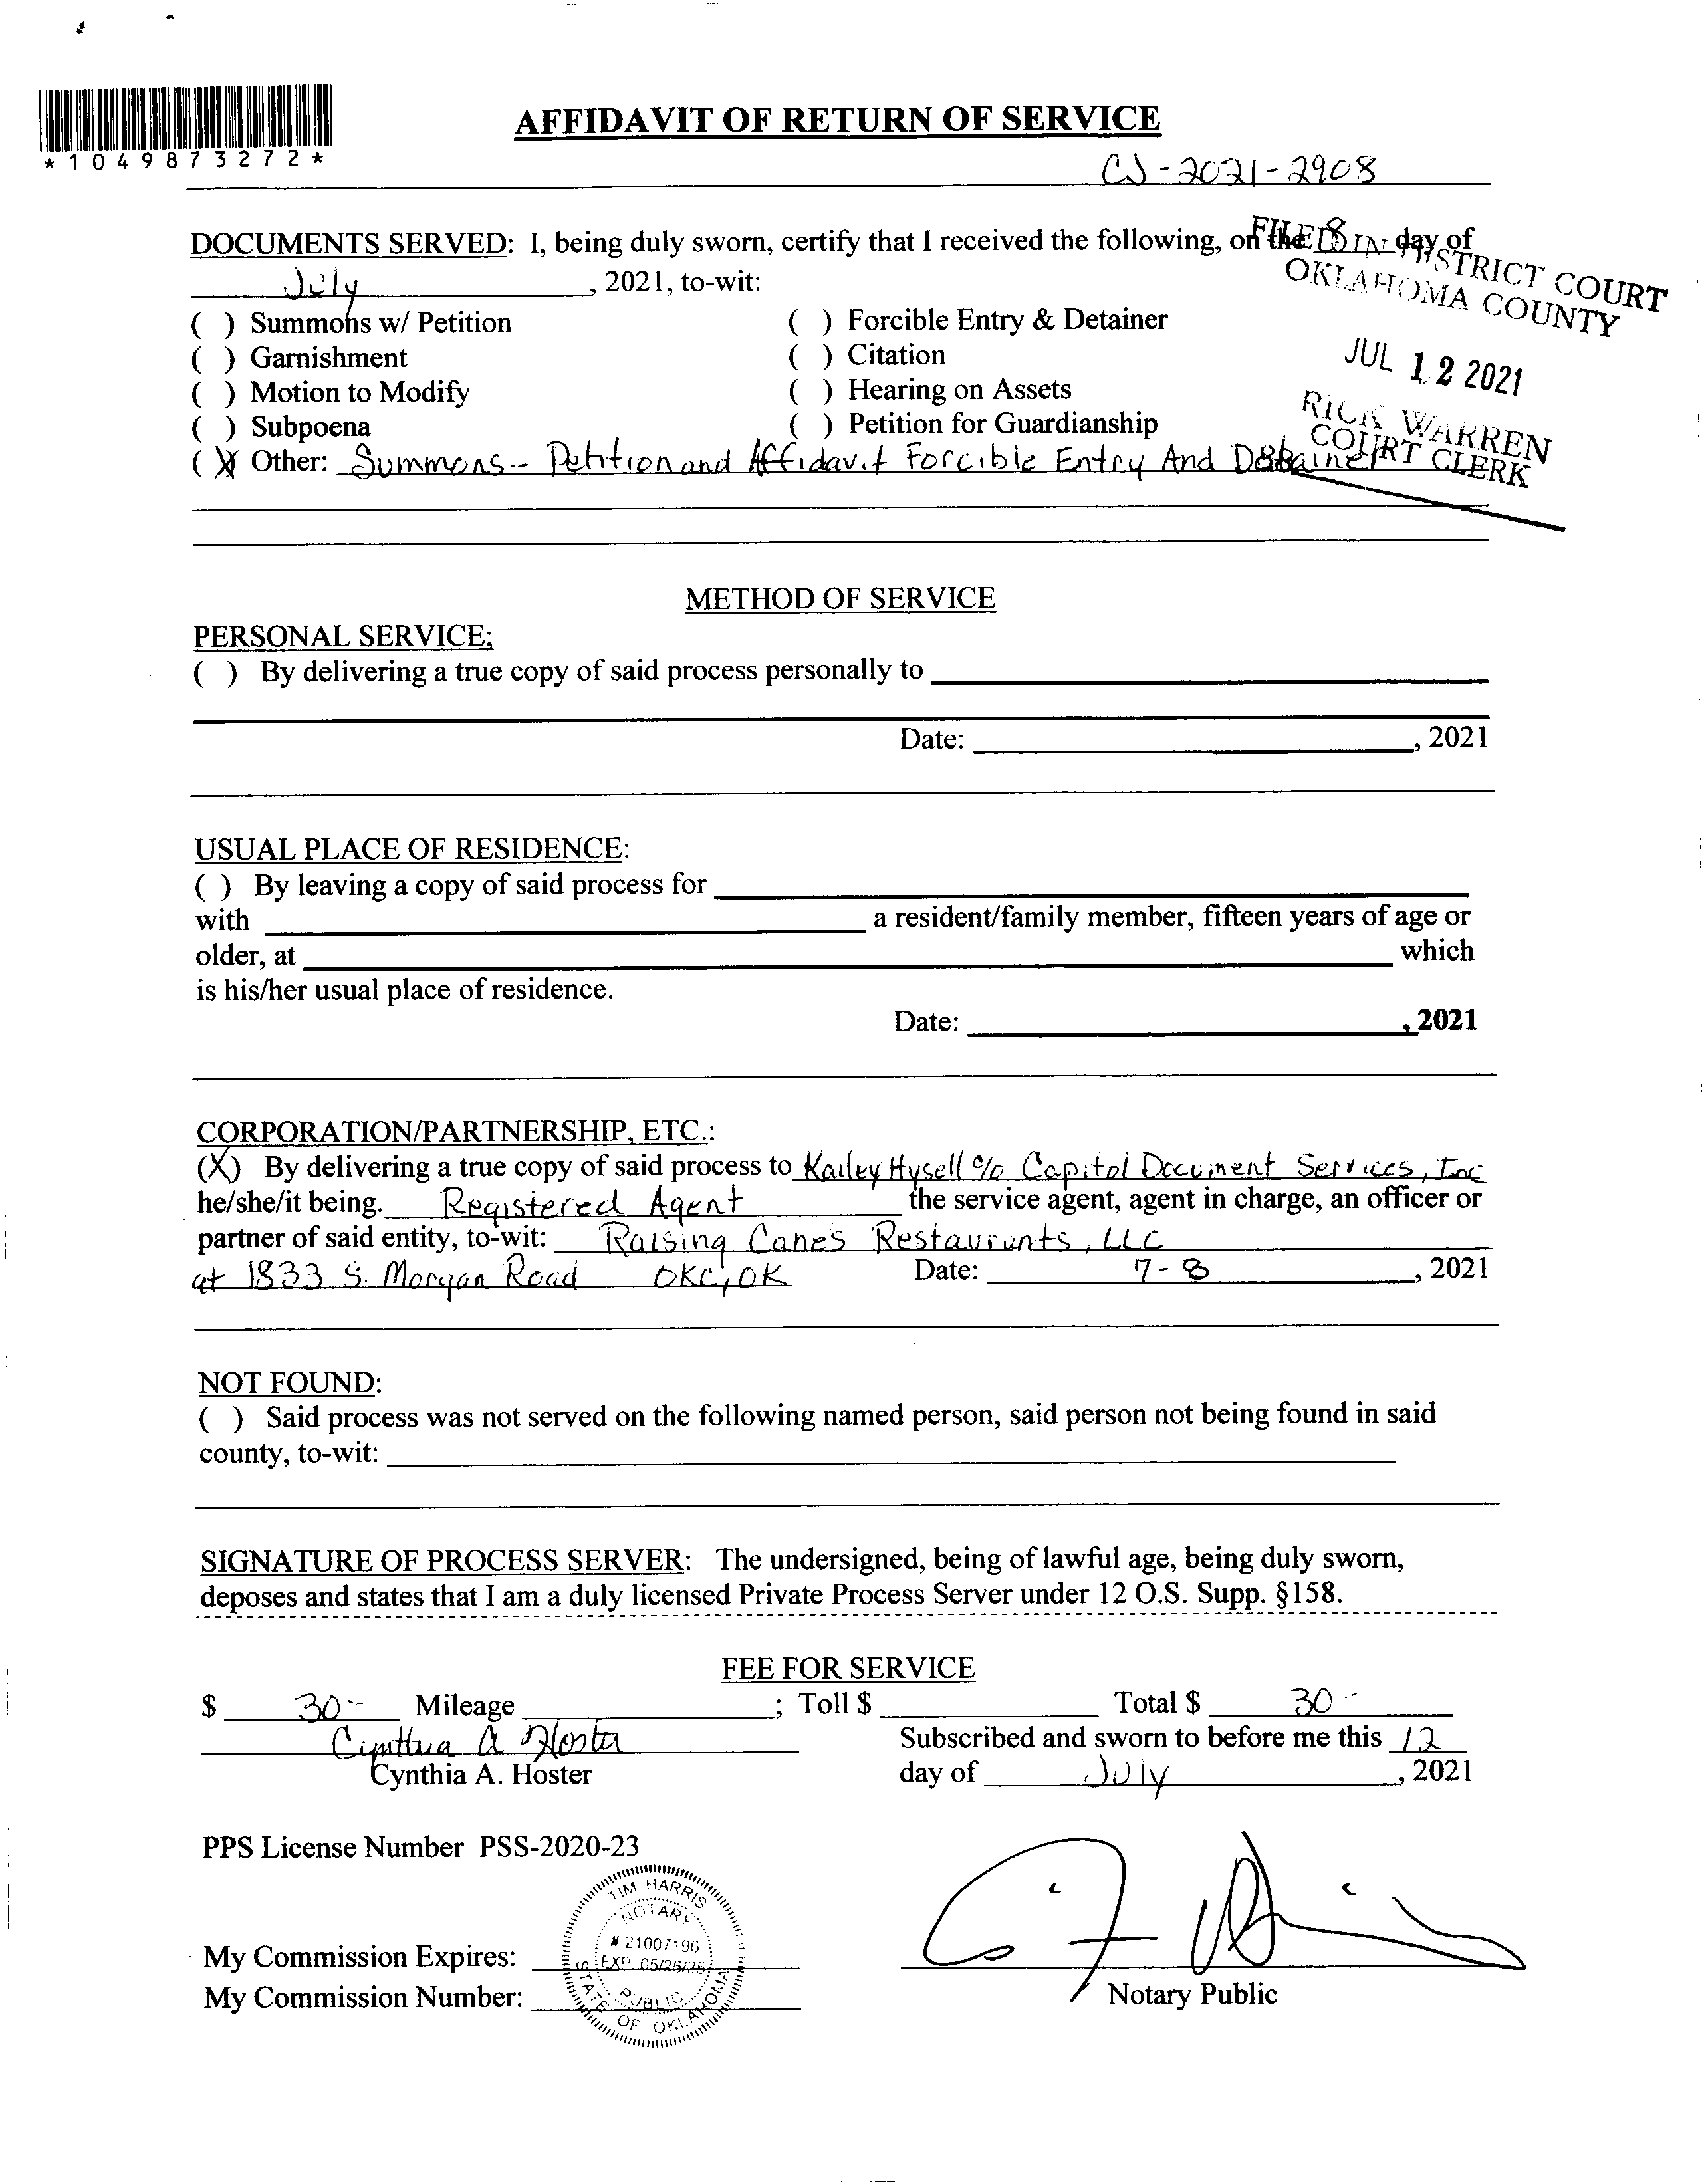 *1049873272*
AFFIDAVIT OF RETURN OF SERVICE
CJ-2021-2908
DOCUMENTS SERVED: I, being duly sworn, certify that I received the following, on the 8 day of
July, 2021, to-wit:
FILED IN DISTRICT COURT
OKLAHOMA COUNTY
JUL 12 2021
RICK WARREN
COURT CLERK
( ) Summons w/ Petition ( ) Forcible Entry & Detainer
( ) Garnishment ( ) Citation
( ) Motion to Modify ( ) Hearing on Assets
( ) Subpoena ( ) Petition for Guardianship
(X) Other: Summons - Petition and Affidavit Forcible Entry And Detainer
METHOD OF SERVICE
PERSONAL SERVICE;
( ) By delivering a true copy of said process personally to
Date: , 2021
USUAL PLACE OF RESIDENCE:
( ) By leaving a copy of said process for
with a resident/family member, fifteen years of age or
older, at which
is his/her usual place of residence.
Date: , 2021
CORPORATION/PARTNERSHIP, ETC.:
(X) By delivering a true copy of said process to Kailey Hysell c/o Capitol Document Services, Inc
he/she/it being. Registered Agent the service agent, agent in charge, an officer or
partner of said entity, to-wit: Raising Cane's Restaurants, LLC
at 1833 S. Morgan Road OKC, OK Date: 7-8, 2021
NOT FOUND:
( ) Said process was not served on the following named person, said person not being found in said
county, to-wit:
SIGNATURE OF PROCESS SERVER: The undersigned, being of lawful age, being duly sworn,
deposes and states that I am a duly licensed Private Process Server under 12 O.S. Supp. §158.
FEE FOR SERVICE
$ 30.- Mileage ; Toll $ Total $ 30.-
Cynthia A Hoster Subscribed and sworn to before me this 12
Cynthia A. Hoster day of July, 2021
PPS License Number PSS-2020-23
TIM HARRIS
NOTARY
# 21007196
EXP. 05/26/25
PUBLIC
STATE OF OKLAHOMA
My Commission Expires:
My Commission Number:
Notary Public